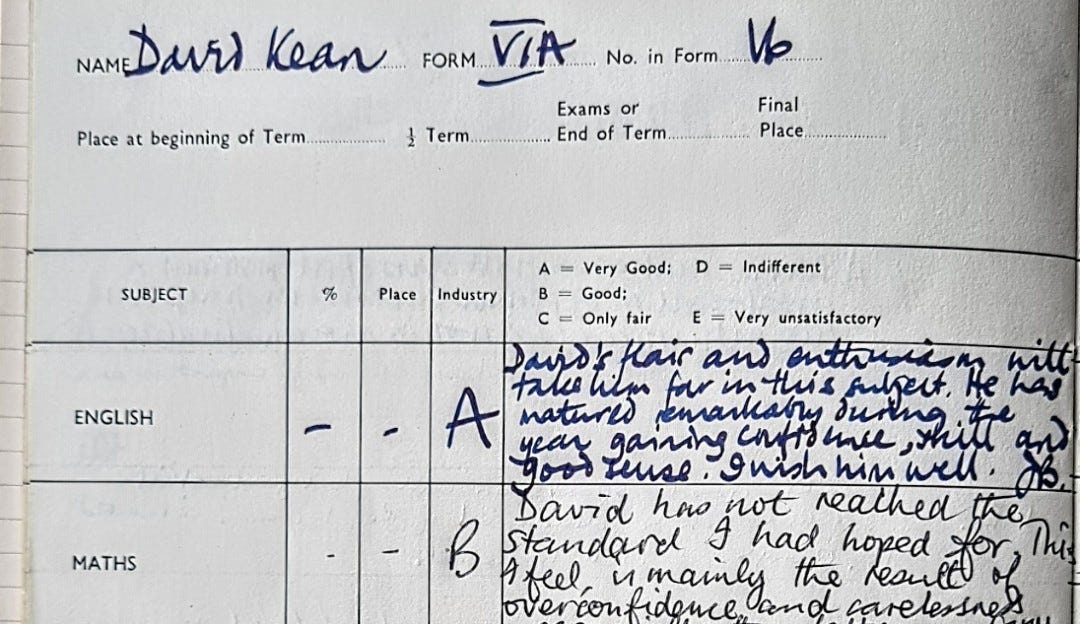 NAME David Kean FORM VIA No. in Form V6
Exams or Final
Place at beginning of Term ½ Term End of Term Place
SUBJECT % Place Industry
A = Very Good; D = Indifferent
B = Good;
C = Only fair E = Very unsatisfactory
ENGLISH - - A
David's flair and enthusiasm will
take him far in this subject. He has
matured remarkably during the
year gaining confidence, skill and
good sense. I wish him well. JB.
MATHS - - B
David has not reached the
standard I had hoped for. This
I feel, is mainly the result of
overconfidence and carelessness